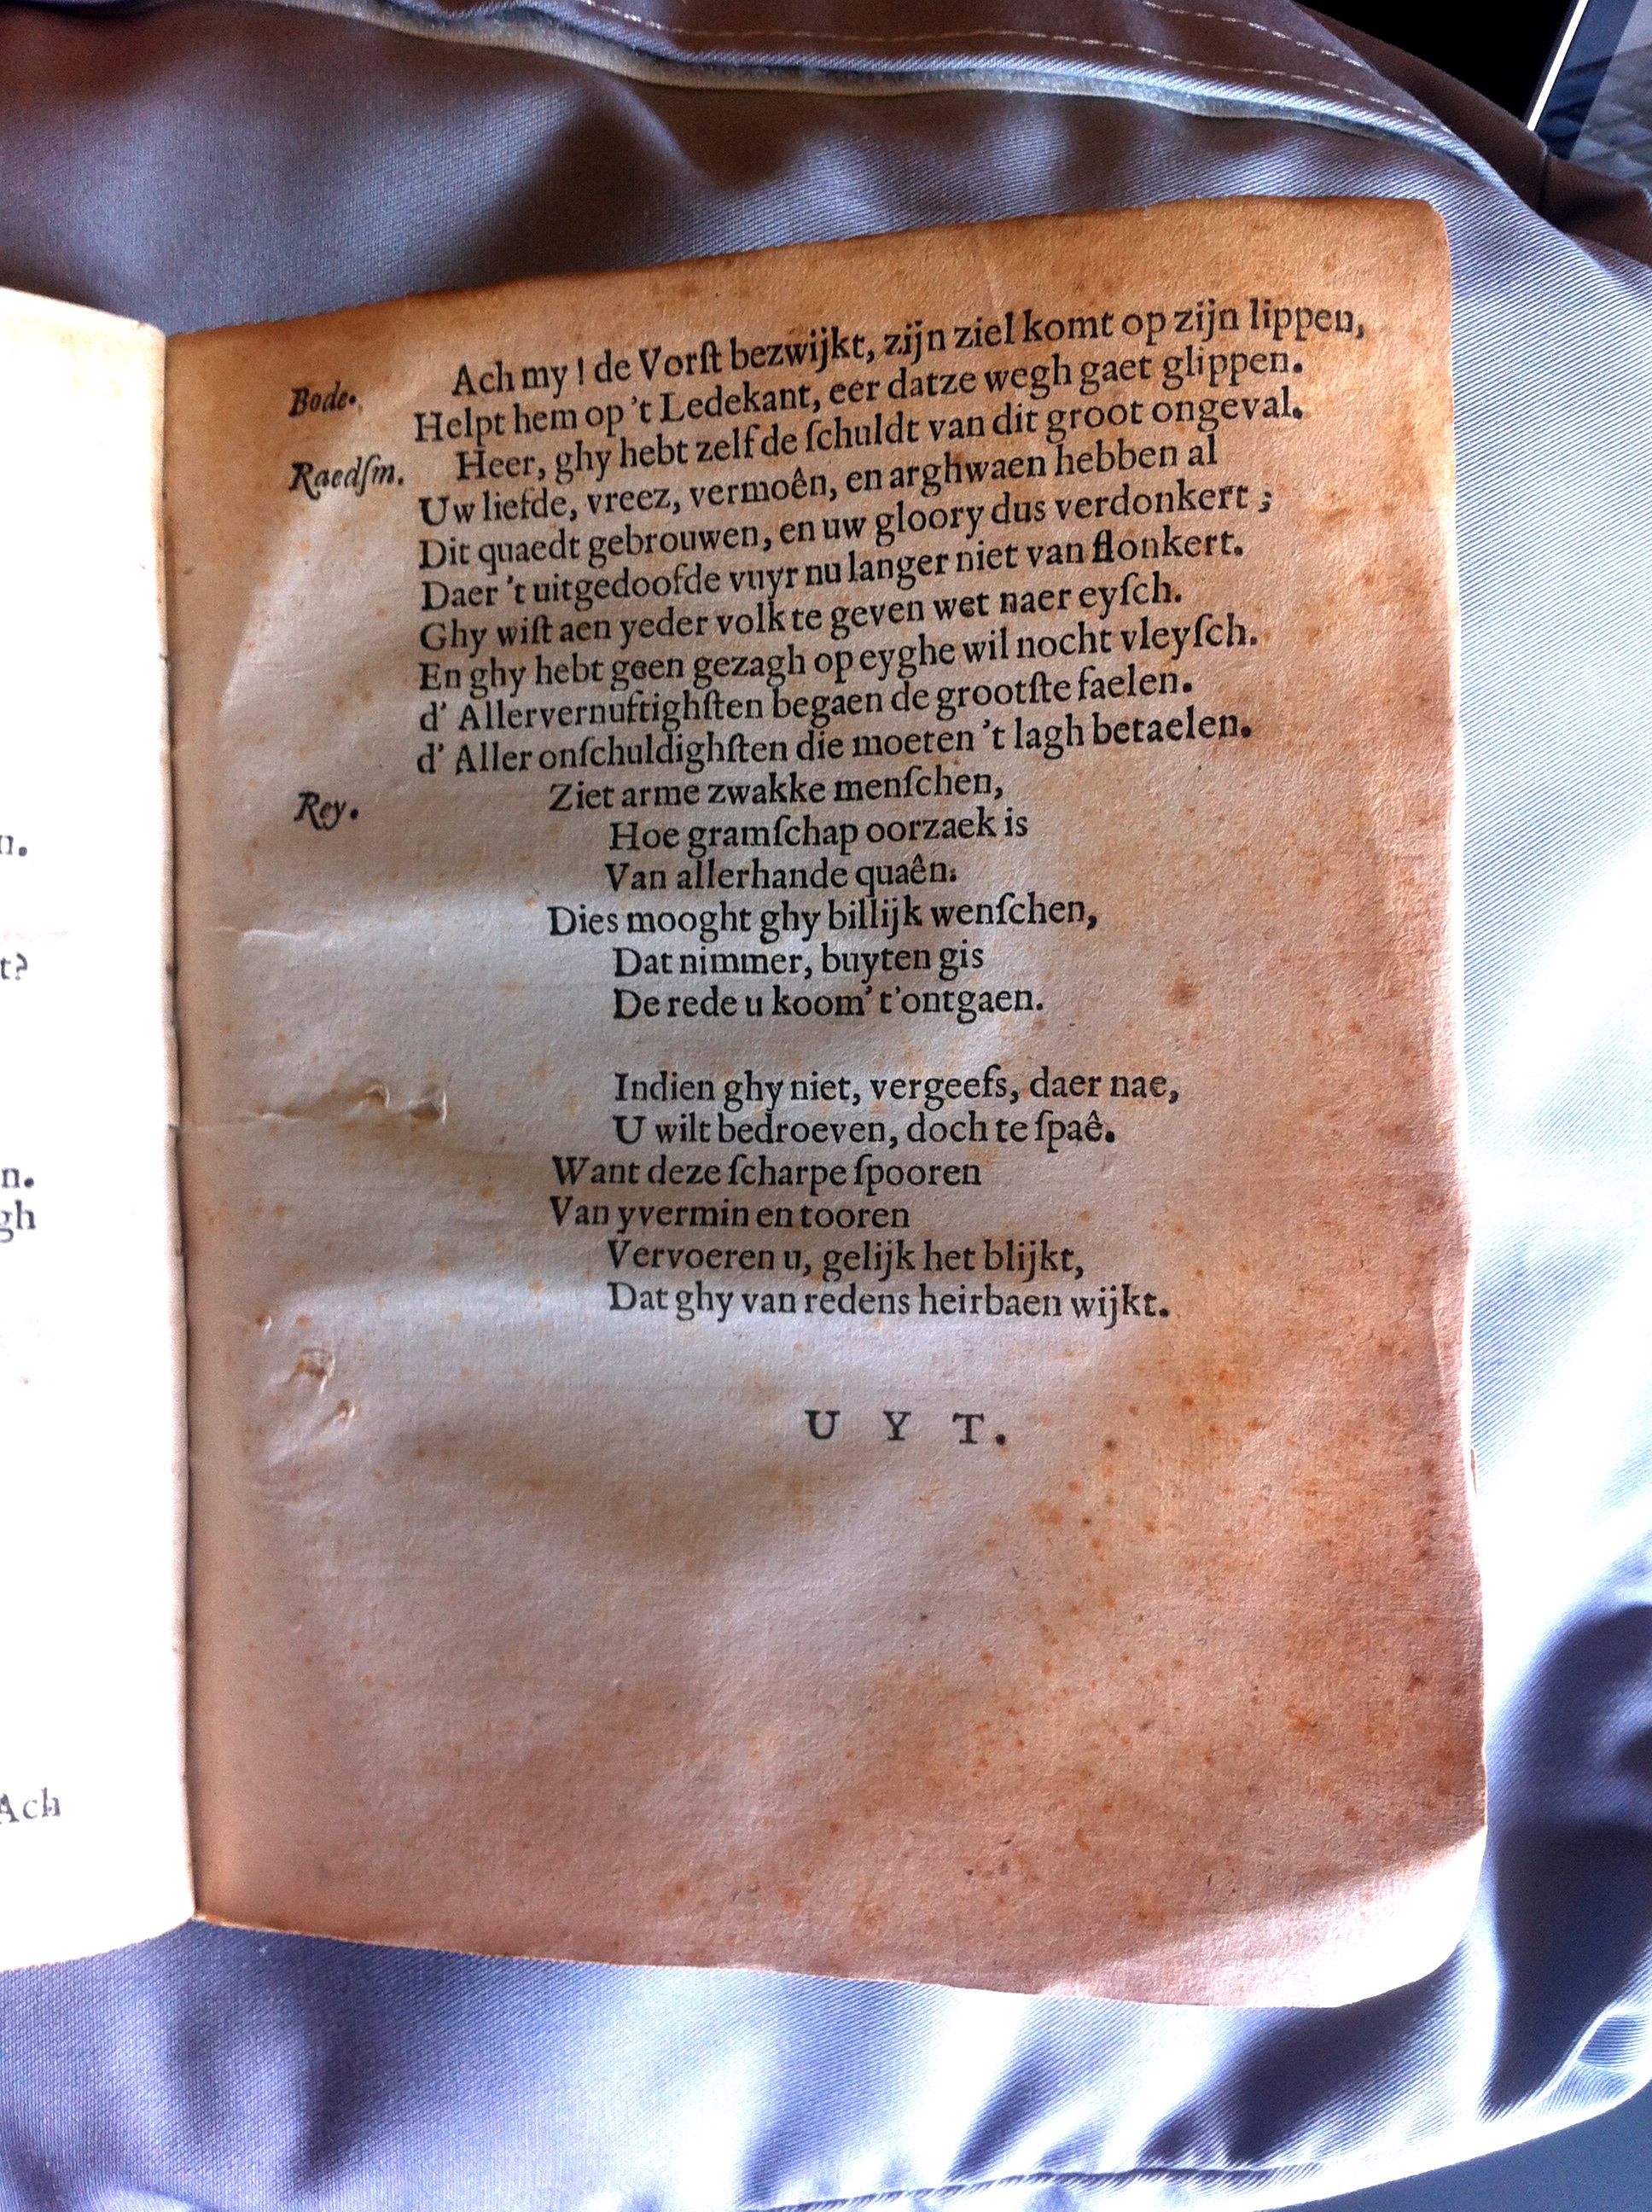 n.
t?
n.
gh
Ach
Bode. Ach my! de Vorſt bezwijkt, zijn ziel komt op zijn lippen,
Helpt hem op 't Ledekant, eer datze wegh gaet glippen.
Raedſm. Heer, ghy hebt zelf de ſchuldt van dit groot ongeval.
Uw liefde, vreez, vermoên, en arghwaen hebben al
Dit quaedt gebrouwen, en uw gloory dus verdonkert;
Daer 't uitgedoofde vuyr nu langer niet van flonkert.
Ghy wiſt aen yeder volk te geven wet naer eyſch.
En ghy hebt geen gezagh op eyghe wil nocht vleyſch.
d' Allervernuftighſten begaen de grootſte faelen.
d' Aller onſchuldighſten die moeten 't lagh betaelen.
Rey. Ziet arme zwakke menſchen,
Hoe gramſchap oorzaek is
Van allerhande quaên.
Dies mooght ghy billijk wenſchen,
Dat nimmer, buyten gis
De rede u koom' t'ontgaen.
Indien ghy niet, vergeefs, daer nae,
U wilt bedroeven, doch te ſpaê.
Want deze ſcharpe ſpooren
Van yvermin en tooren
Vervoeren u, gelijk het blijkt,
Dat ghy van redens heirbaen wijkt.
UYT.